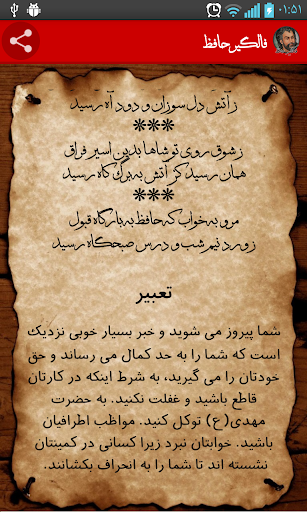 ۰۱:۵۱
فالگیر حافظ
ز آتش دل سوزان و دود آه رسید
***
ز شوق روی تو شاها بدین اسیر فراق
همان رسید کز آتش به برگ کاه رسید
***
مرو به خواب که حافظ به بارگاه قبول
ز ورد نیم شب و درس صبحگاه رسید
تعبیر
شما پیروز می شوید و خبر بسیار خوبی نزدیک
است که شما را به حد کمال می رساند و حق
خودتان را می گیرید، به شرط اینکه در کارتان
قاطع باشید و غفلت نکنید. به حضرت
مهدی(ع) توکل کنید. مواظب اطرافیان
باشید. خوابتان نبرد زیرا کسانی در کمینتان
نشسته اند تا شما را به انحراف بکشانند.